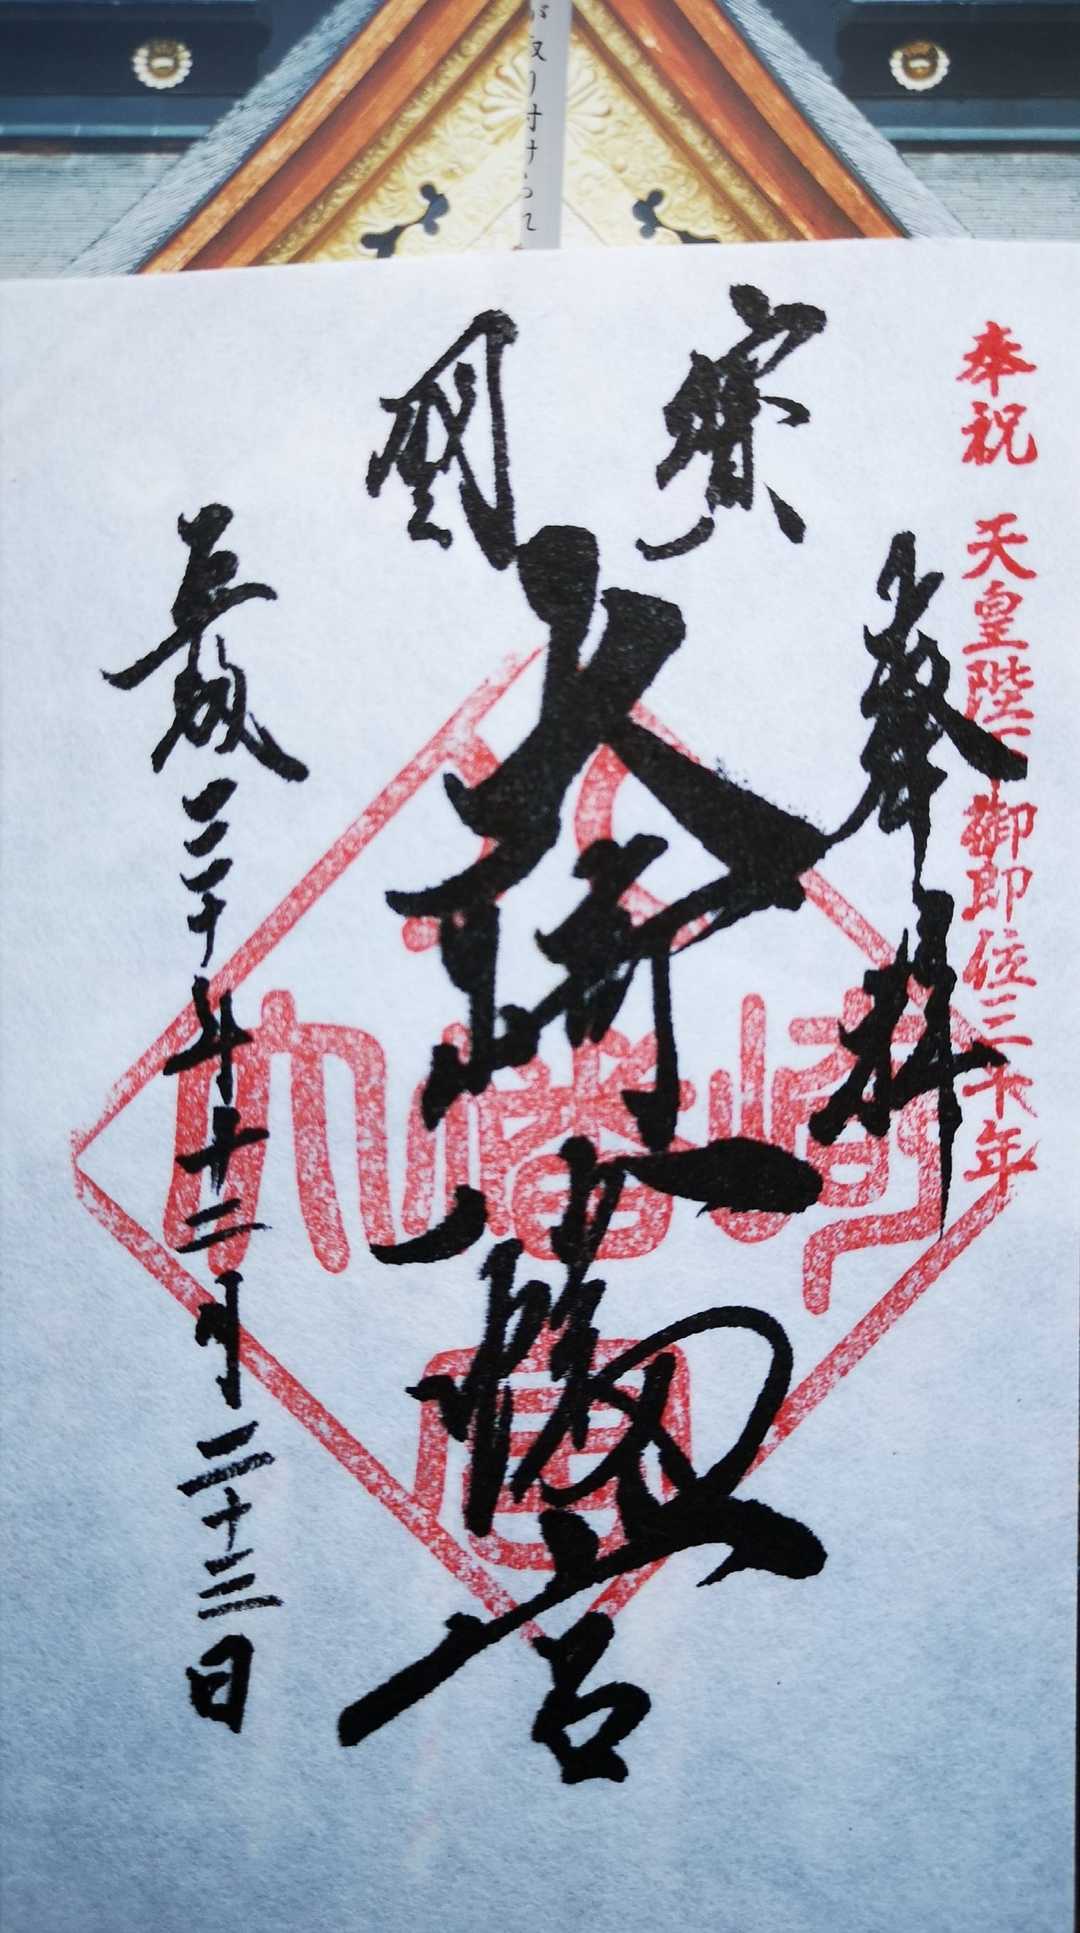 が取り付けられ
奉祝 天皇陛下御即位三十年
奉拝
國寶
大崎八幡宮
平成三十年十二月二十三日
大崎八幡宮